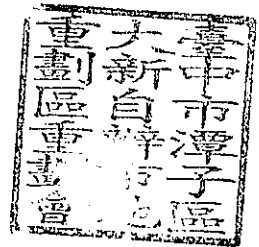 臺中市潭子區
大新自辦市地
重劃區重劃會